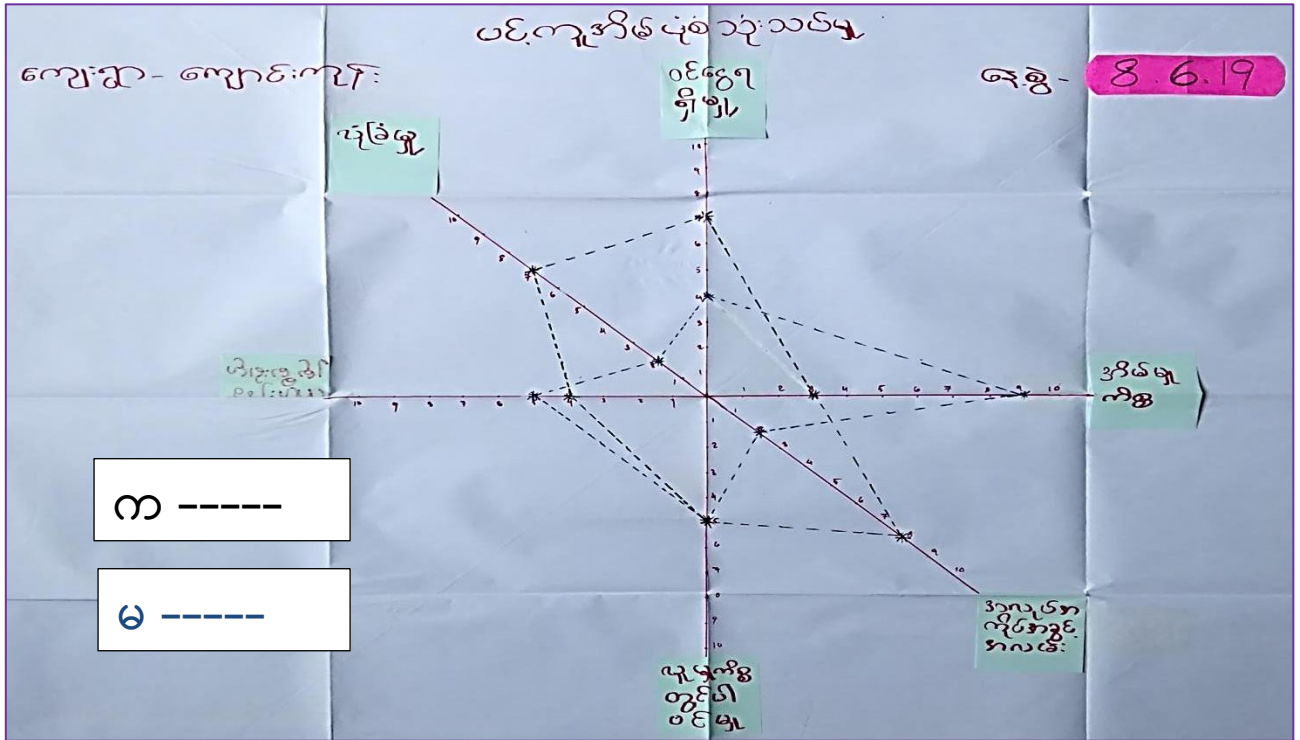 ပင့်ကူအိမ်ပုံစံသုံးသပ်မှု
ကျေးရွာ - ကျောင်းကုန်း
နေ့စွဲ - 8.6.19
ဝင်ငွေရ
ရှိမှု
လုံခြုံမှု
အိမ်မှု
ကိစ္စ
အလုပ်အ
ကိုင်အခွင့်
အလမ်း
လူမှုကိစ္စ
တွင်ပါ
ဝင်မှု
က -----
မ -----